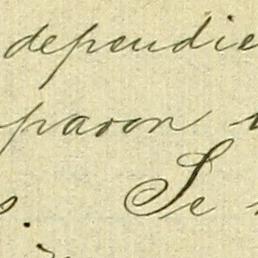 dependie
paron
s. Se